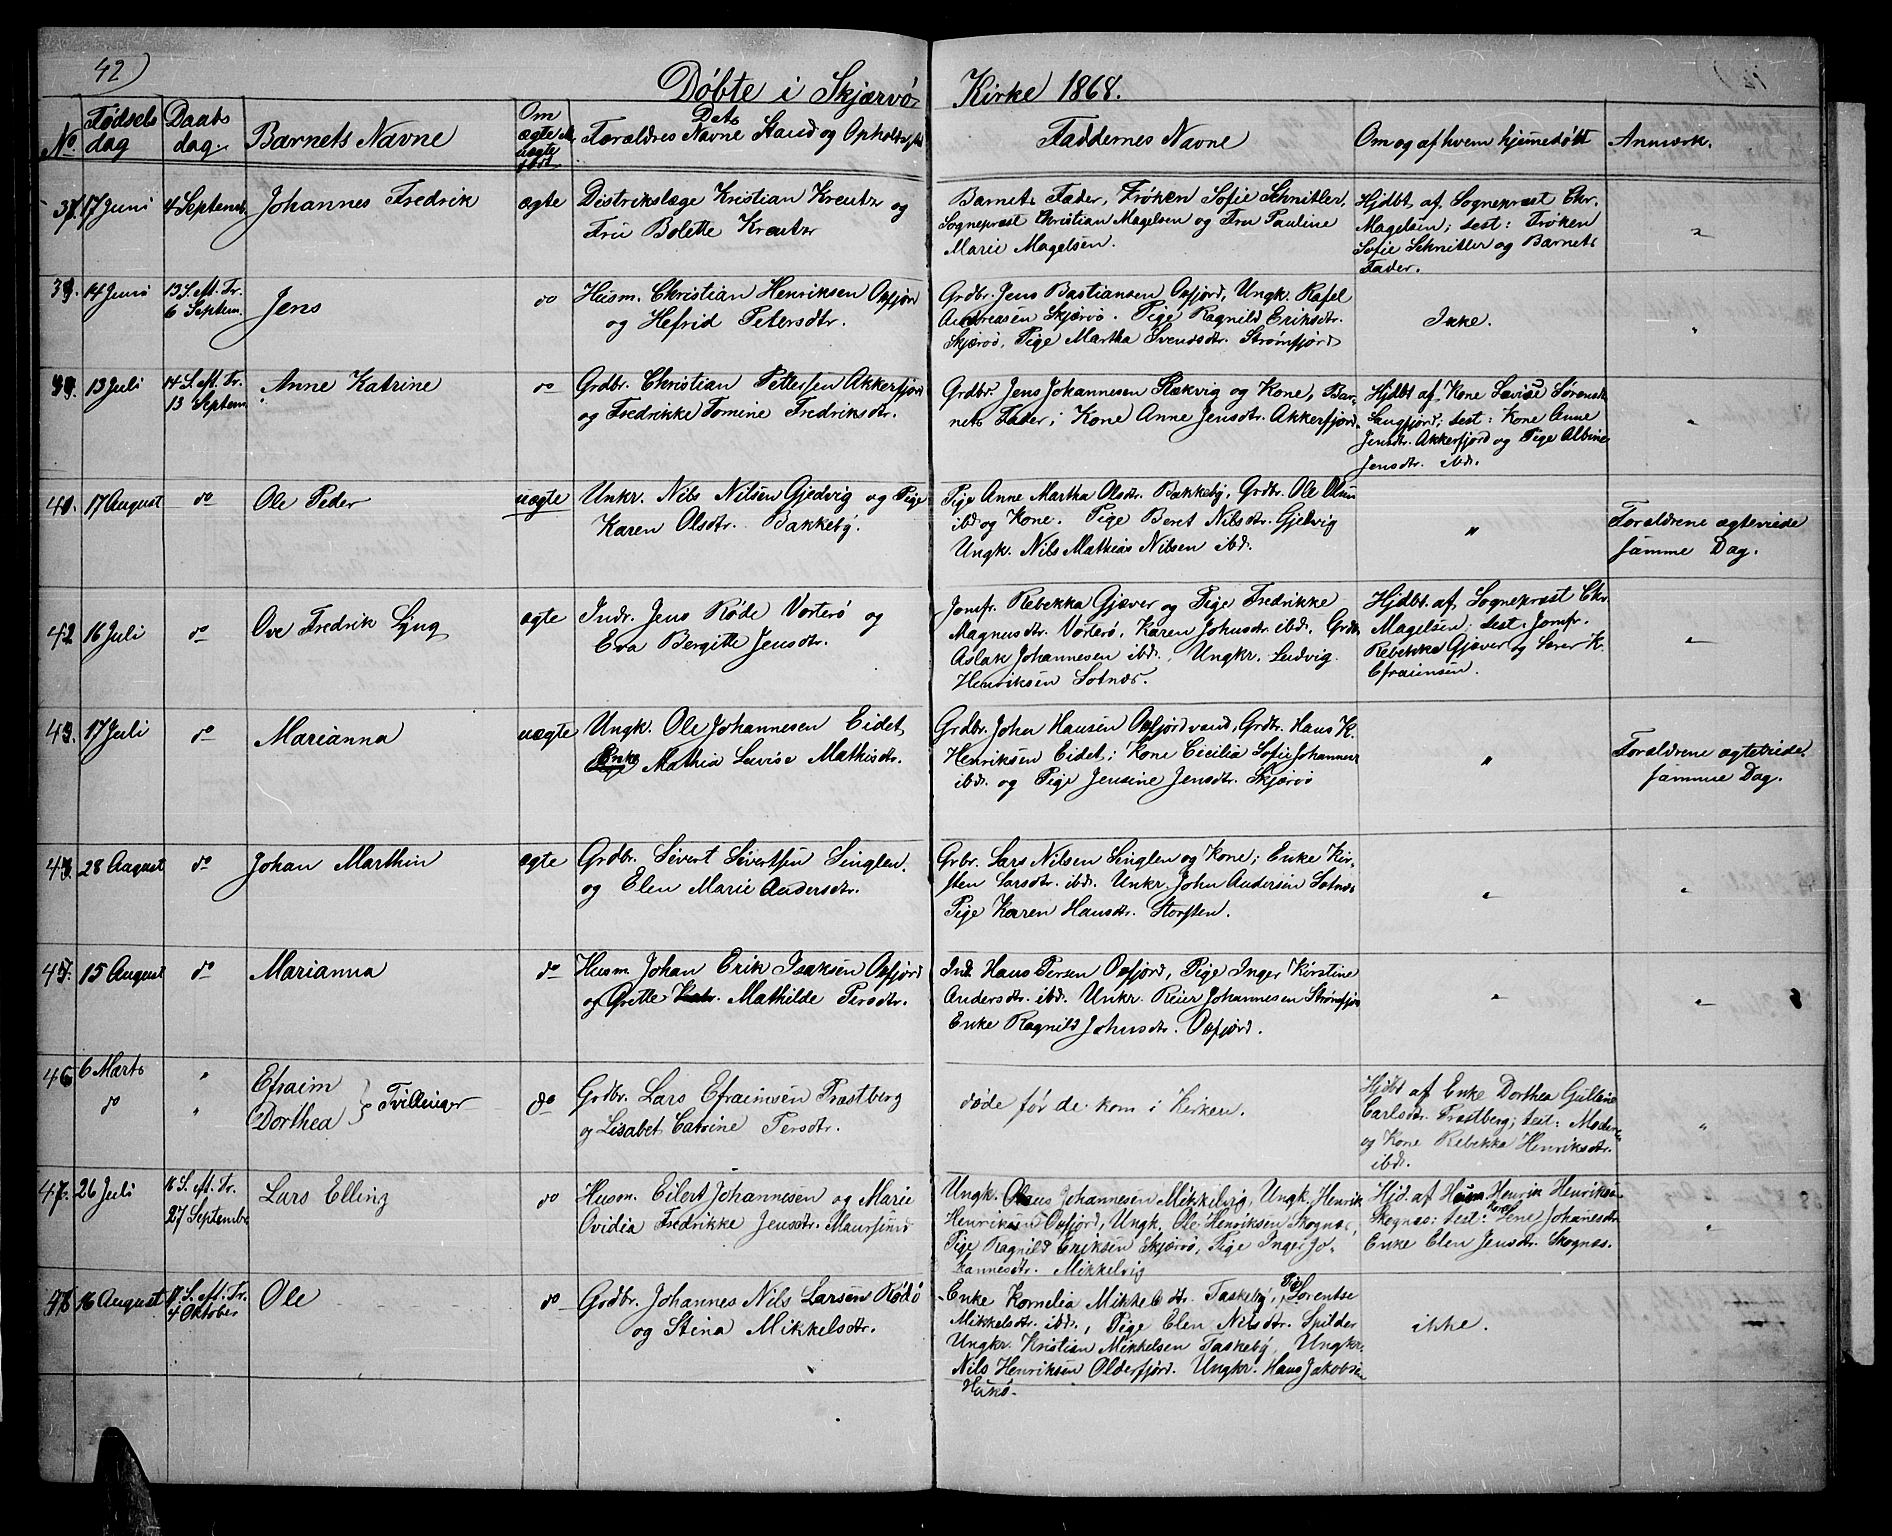 42)
Døbte i Skjærvø Kirke 1868.
No.
Fødsels dag
Daabs dag.
Barnets Navne
Om ægte el. uægte født
Dets Forældres Navne Stand og Opholdssted
Faddernes Navne
Om og af hvem hjemmedøbt
Anmærk.
37. 17 Juni
4 Septemb.
Johannes Fredrik
ægte
Distrikslæge Kristian Kreutz og
Fru Bolette Kreutz
Barnets Fader, Frøken Sofie Schnitler,
Sognepræst Christian Magelsen og Fru Pauline
Marie Magelsen.
Hjdbt. af Sognepræst Chr.
Magelsen; test: Frøken
Sofie Schnitler og Barnets
Fader.
"
14 Juni
13 S. M. Tr.
6 Septem.
Jens
do
Husm. Christian Henriksen Oxfjord
og Hefrid Petersdtr.
Grdbr. Jens Bastiansen Oxfjord, Ungk. Rafel
Andreasen Skjærvø. Pige Ragnild Eriksdtr.
Skjærvø, Pige Martha Svendsdtr. Strømfjord
Ikke.
"
39. 13 Juli
14 S. M. Tr.
13 Septem.
Anne Katrine
do
Grdbr. Christian Pettersen Akkerfjord
og Fredrikke Tomine Fredriksdtr.
Grdbr. Jens Johannesen Rækvig og Kone, Bar-
nets Fader; Kone Anne Jensdtr. Akkerfjord.
Hjdbt. af Kone Lovise Sørensdtr
Langfjord; test: Kone Anne
Jensdtr. Akkerfjord og Pige Albine
Jensdtr. ibd.
"
40. 17 August
do
Ole Peder
uægte
Unkr. Nils Nilsen Gjedvig og Pige
Karen Olsdtr. Bakkeby.
Pige Anne Martha Olsdtr. Bakkeby, Grdbr. Ole Olsen
ibd. og Kone. Pige Beret Nilsdtr. Gjedvig
Ungk. Nils Mathias Nilsen ibd.
"
Forældrene ægteviede
samme Dag.
42 16 Juli
do
Ove Fredrik Ljng
ægte
Indr. Jens Røde Vorterø og
Eva Bergitte Jensdtr.
Jomfr. Rebekka Gjæver og Pige Fredrikke
Magnusdtr. Vorterø, Karen Johnsdtr. ibd. Grdb.
Aslak Johannesen ibd., Ungkr. Ludvig
Henriksen Sotnæs.
Hjdbt. af Sognepræst Chr.
Magelsen; test: Jomfr.
Rebekka Gjæver og Sører K.
Efraimsen.
"
43. 17 Juli
do
Marianna
uægte
Ungk. Ole Johannesen Eidet,
Enke Mathia Lovise Mathisdtr.
Grdbr. John Hansen Oxfjordvand, Grdtr. Hans K.
Henriksen Eidet; Kone Cecilia Sofie Johannes
ibd. og Pige Jensine Jensdtr. Skjærvø
"
Forældrene ægteviede
samme Dag.
28 August
do
Johan Marthin
ægte
Grdbr. Sivert Sivertsen Singlen.
og Elen Marie Andersdtr.
Grbr. Lars Nilsen Singlen og Kone; Enke Kir-
sten Larsdtr. ibd. Unkr. John Andersen Sotnæs
Pige Karen Hansdtr. Storsten.
"
"
15 August
do
Marianna
do
Husm. Johan Erik Isaksen Oxfjord
og Grette Katr. Mathilde Persdtr.
Ind. Hans Persen Oxfjord, Pige Inger Kirstine
Andersdtr. ibd. Unkr. Reier Johannesen Strømfjor
Enke Ragnild Johnsdtr. Oxfjord.
"
"
46 6 Marts
do
"
"
Efraim
Dorthea } Tvillinger
do
Grdbr. Lars Efraimsen Trastberg
og Lisabet Catrine Persdtr.
døde før de kom i Kirken.
Hjdbt af Enke Dorthea Gulline
Carlsdtr. Trastberg; test: Moderen
og Kone Rebekka Henriksdtr.
ibd.
"
47. 26 Juli
16 S. M. Tr.
27 Septembe
Lars Elling
do
Husm. Eilert Johannesen og Marie
Ovidia Fredrikke Jensdtr. Maursund
Ungk. Olaus Johannesen Mikkelvig, Ungk. Henrik
Henriksen Oxfjord, Ungk. Ole Henriksen Skognæs,
Pige Ragnild Eriksen Skjærvø, Pige Inger Jo-
hannesdtr. Mikkelvig
Hjd. af Husm. Henrik Henriksen
Skognæs; test: Kone Lene Johanesdtr
Enke Elen Jensdtr. Skognæs.
"
48 16 August
17 S. M. Tr.
4 Oktober
Ole
do
Grdbr. Johannes Nils Larsen Rødø
og Stina Mikkelsdtr.
Enke Kornelia Mikkelsdtr. Taskeby, Pige Lorentse
Mikkelsdtr. ibd., Pige Elen Nilsdtr. Spilder
Ungkr. Kristian Mikkelsen Taskeby, Ungkr.
Nils Henriksen Olderfjord. Ungkr. Hans Jakobsen
Hukø.
ikke.